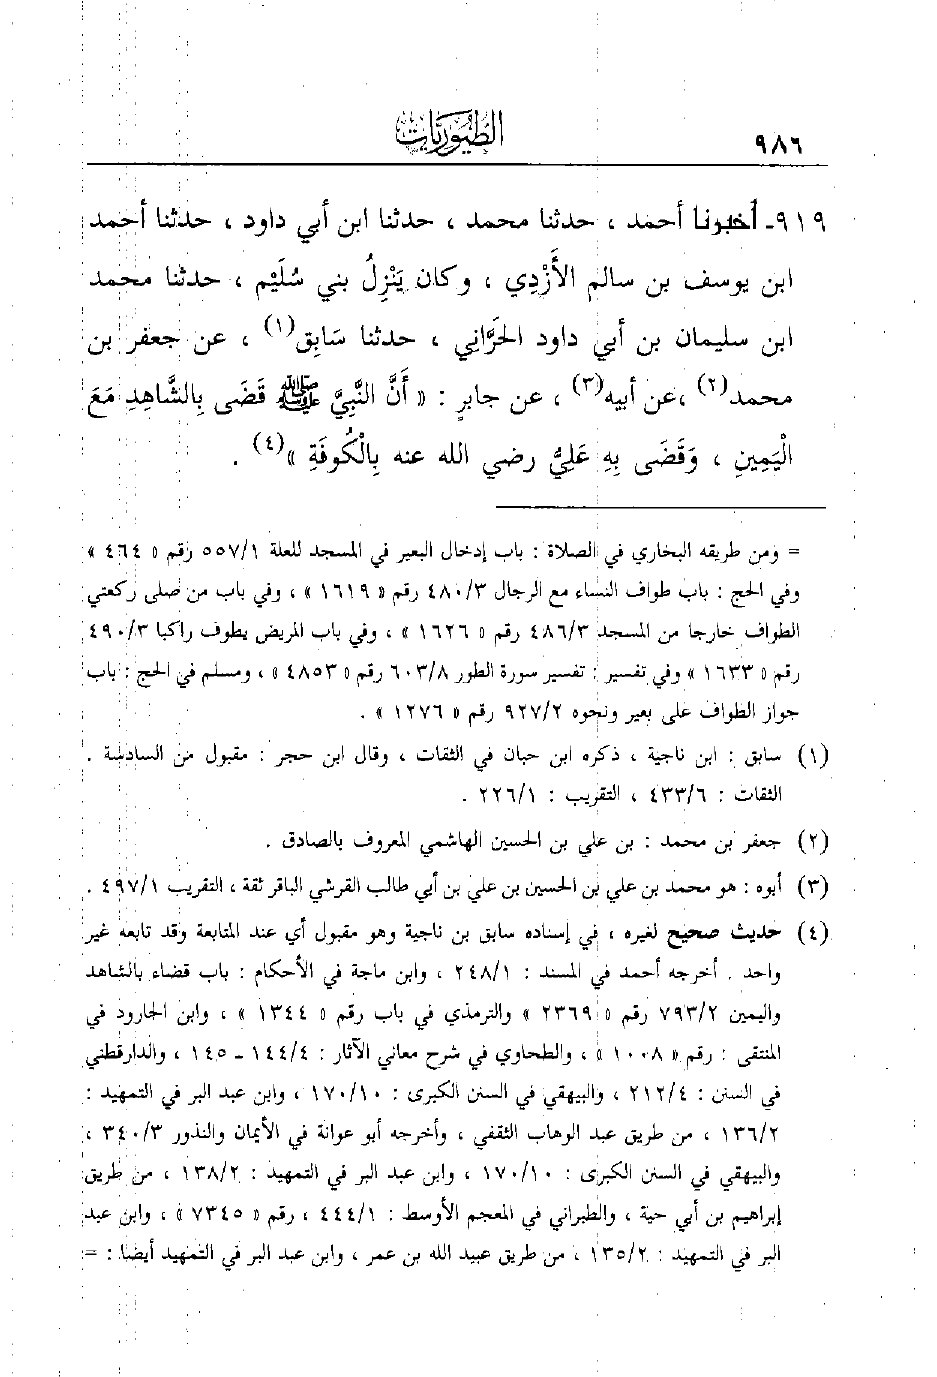 ٩٨٦
الطيوريات
٩١٩- أخبرنا أحمد ، حدثنا محمد ، حدثنا ابن أبي داود ، حدثنا أحمد
ابن يوسف بن سالم الأَزْدِي ، وكان يَنْزِلُ بني سُلَيْم ، حدثنا محمد
ابن سليمان بن أبي داود الحَرَّاني ، حدثنا سَابِق(١) ، عن جعفر بن
محمد(٢) ،عن أبيه(٣) ، عن جابرٍ : « أَنَّ النَّبِيَّ ﷺ قَضَى بِالشَّاهِدِ مَعَ
الْيَمِينِ ، وَقَضَى بِهِ عَلِيُّ رضي الله عنه بِالْكُوفَةِ »(٤) .
= ومن طريقه البخاري في الصلاة : باب إدخال البعير في المسجد للعلة ٥٥٧/١ رقم « ٤٦٤ »
وفي الحج : باب طواف النساء مع الرجال ٤٨٠/٣ رقم « ١٦١٩ » ، وفي باب من صلى ركعتي
الطواف خارجا من المسجد ٤٨٦/٣ رقم « ١٦٢٦ » ، وفي باب المريض يطوف راكبا ٤٩٠/٣
رقم « ١٦٣٣ » وفي تفسير : تفسير سورة الطور ٦٠٣/٨ رقم « ٤٨٥٣ » ، ومسلم في الحج : باب
جواز الطواف على بعير ونحوه ٩٢٧/٢ رقم « ١٢٧٦ » .
(١) سابق : ابن ناجية ، ذكره ابن حبان في الثقات ، وقال ابن حجر : مقبول من السادسة .
الثقات : ٤٣٣/٦ ، التقريب : ٢٢٦/١ .
(٢) جعفر بن محمد : بن علي بن الحسين الهاشمي المعروف بالصادق .
(٣) أبوه : هو محمد بن علي بن الحسين بن علي بن أبي طالب القرشي الباقر ثقة ، التقريب ٤٩٧/١ .
(٤) حديث صحيح لغيره ، في إسناده سابق بن ناجية وهو مقبول أي عند المتابعة وقد تابعه غير
واحد . أخرجه أحمد في المسند : ٢٤٨/١ ، وابن ماجة في الأحكام : باب قضاء بالشاهد
واليمين ٧٩٣/٢ رقم « ٢٣٦٩ » والترمذي في باب رقم « ١٣٤٤ » ، وابن الجارود في
المنتقى : رقم « ١٠٠٨ » ، والطحاوي في شرح معاني الآثار : ١٤٤/٤ - ١٤٥ ، والدارقطني
في السنن : ٢١٢/٤ ، والبيهقي في السنن الكبرى : ١٧٠/١٠ ، وابن عبد البر في التمهيد :
١٣٦/٢ ، من طريق عبد الوهاب الثقفي ، وأخرجه أبو عوانة في الأيمان والنذور ٣٤٠/٣ ،
والبيهقي في السنن الكبرى : ١٧٠/١٠ ، وابن عبد البر في التمهيد : ١٣٨/٢ ، من طريق
إبراهيم بن أبي حية ، والطبراني في المعجم الأوسط : ٤٤٤/١ ، رقم « ٧٣٤٥ » ، وابن عبد
البر في التمهيد : ١٣٥/٢ ، من طريق عبيد الله بن عمر ، وابن عبد البر في التمهيد أيضا : =